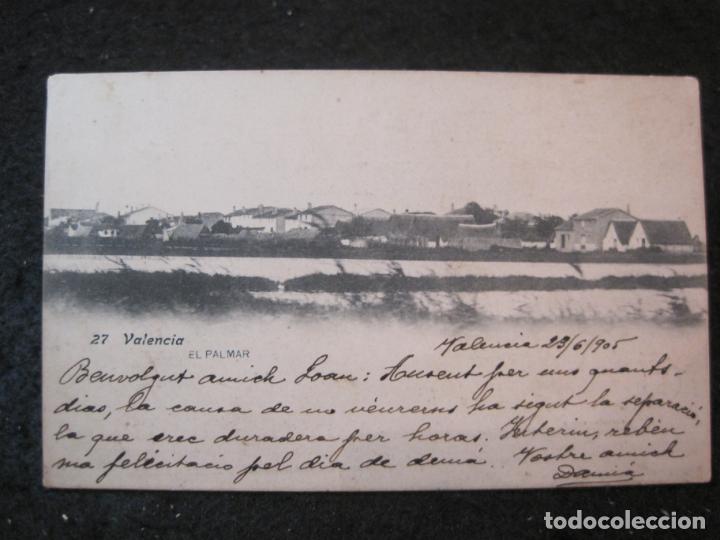 27 Valencia
EL PALMAR
Valencia 23/6/905
Benvolgut amich Joan: Ausent per uns quants
dias, la causa de no véurerns ha sigut la separació,
la que crec duradera per horas. Interin, rebén
ma felicitacio pel dia de demá. Vostre amich
Damiá
todocoleccion.net